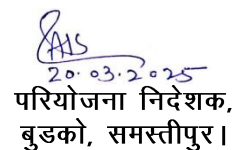 20.03.2025
परियोजना निदेशक,
बुडको, समस्तीपुर।